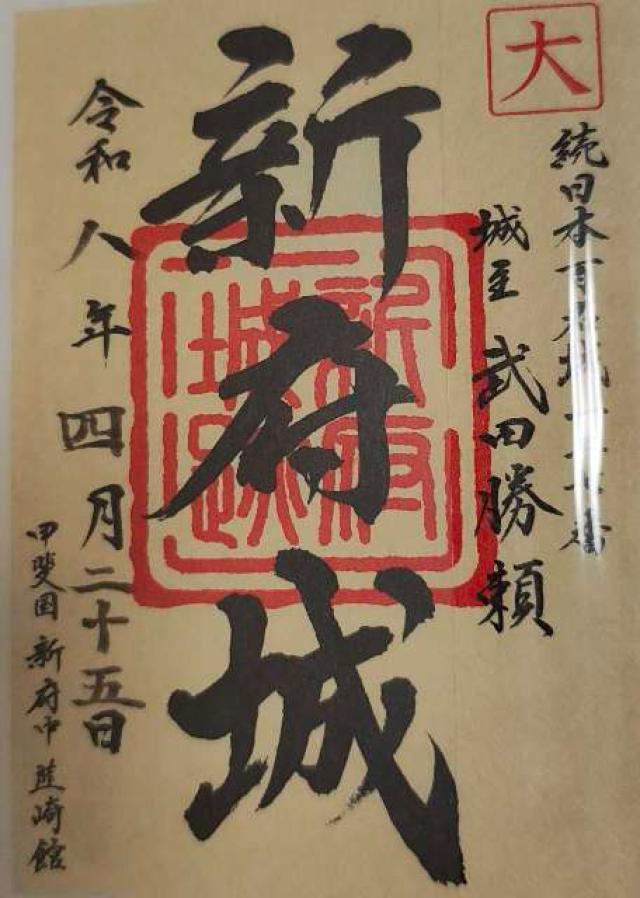 大
続日本百名城
城主 武田勝頼
新府城
新府
城跡
令和八年四月二十五日
甲斐国 新府中 韮崎館